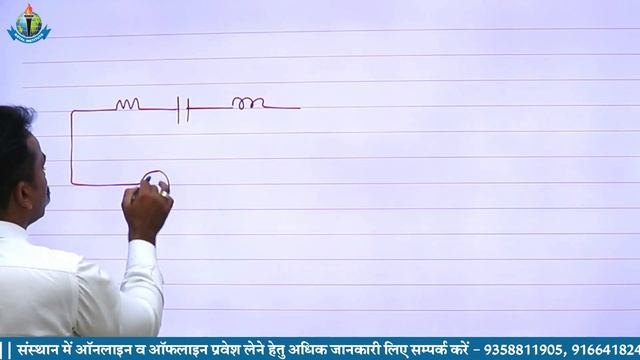 संस्थान में ऑनलाइन व ऑफलाइन प्रवेश लेने हेतु अधिक जानकारी लिए सम्पर्क करें - 9358811905, 916641824